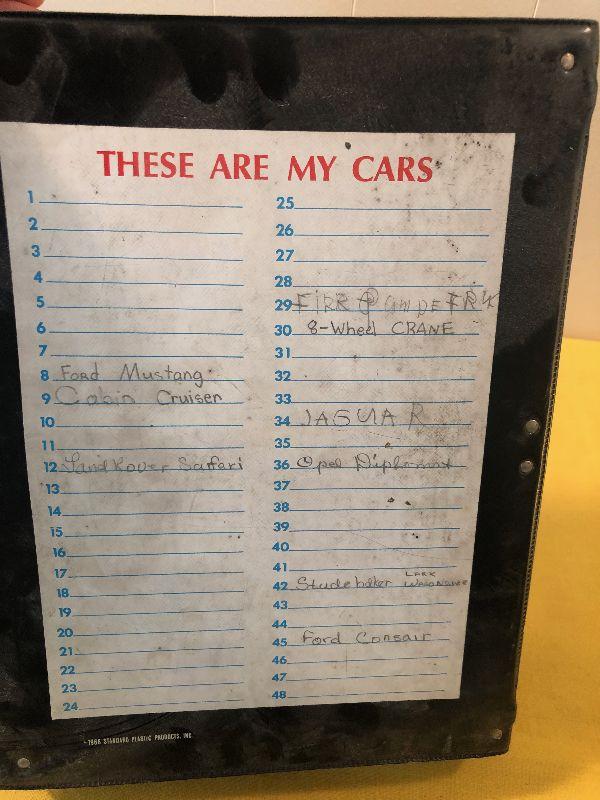 THESE ARE MY CARS
1
2
3
4
5
6
7
8 Ford Mustang
9 Cabin Cruiser
10
11
12 Land Rover Safari
13
14
15
16
17
18
19
20
21
22
23
24
25
26
27
28
29 FIRE Pumper
30 8-Wheel CRANE
31
32
33
34 JAGUAR
35
36 Opel Diplomat
37
38
39
40
41
42 Studebaker LARK WAGONAIRE
43
44
45 Ford Consair
46
47
48
1966 STANDARD PLASTIC PRODUCTS, INC.